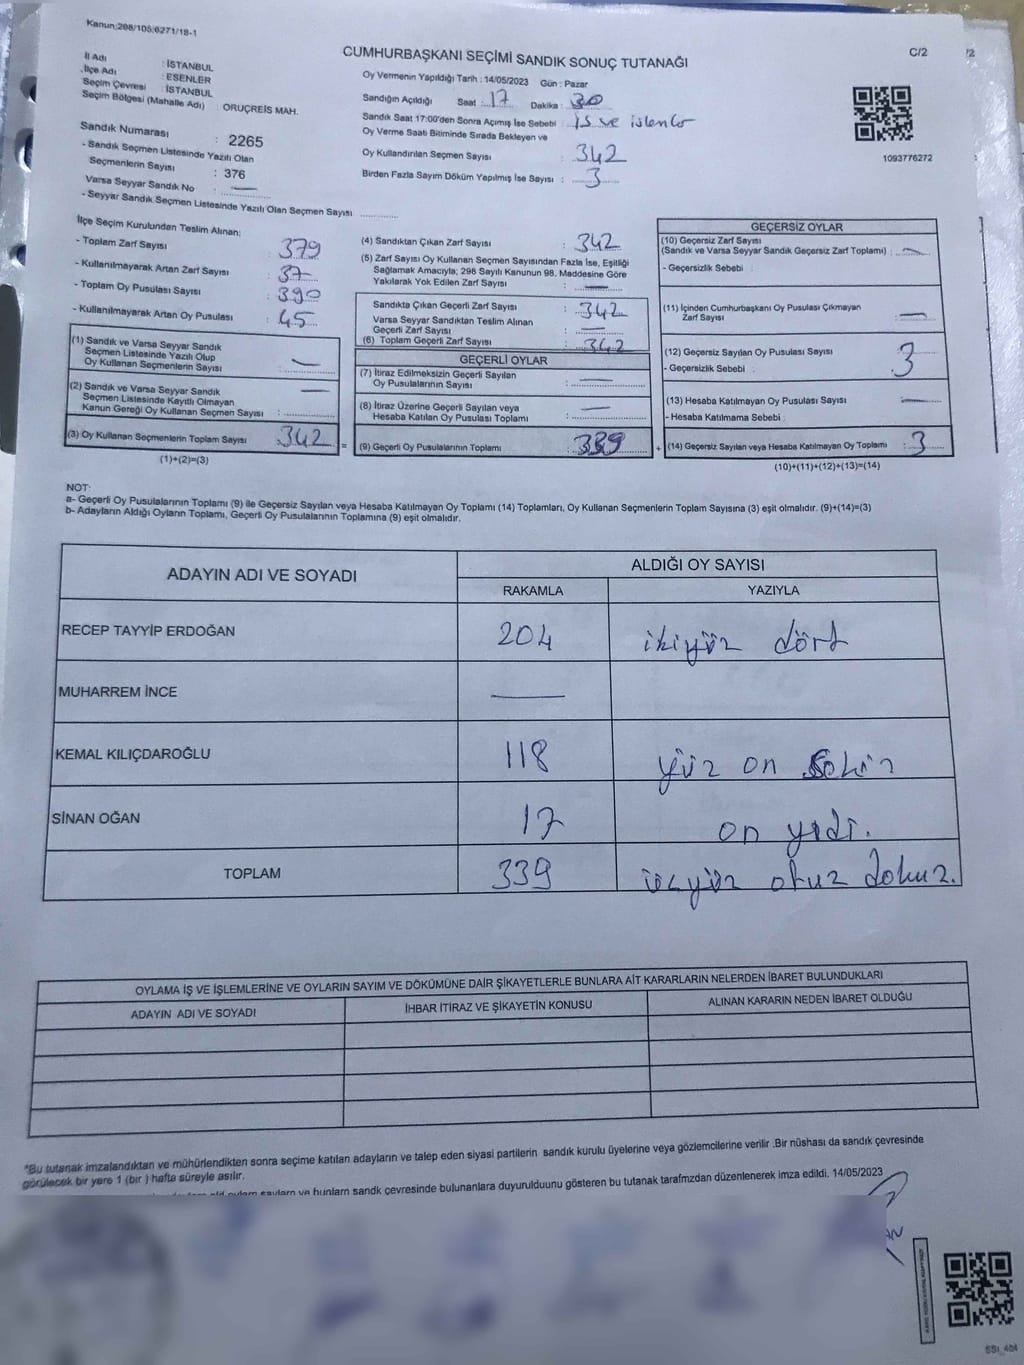 Kanun:298/105;6271/18-1
C/2
/2
CUMHURBAŞKANI SEÇİMİ SANDIK SONUÇ TUTANAĞI
İl Adı : İSTANBUL
İlçe Adı : ESENLER
Seçim Çevresi : İSTANBUL
Seçim Bölgesi (Mahalle Adı) : ORUÇREİS MAH.
Sandık Numarası : 2265
- Sandık Seçmen Listesinde Yazılı Olan
Seçmenlerin Sayısı : 376
Varsa Seyyar Sandık No : —
- Seyyar Sandık Seçmen Listesinde Yazılı Olan Seçmen Sayısı
Oy Vermenin Yapıldığı Tarih : 14/05/2023 Gün : Pazar
Sandığın Açıldığı Saat : 17 Dakika : 30
Sandık Saat 17:00'den Sonra Açımış İse Sebebi : iş ve işlenler
Oy Verme Saati Bitiminde Sırada Bekleyen ve
Oy Kullandırılan Seçmen Sayısı : 342
Birden Fazla Sayım Döküm Yapılmış İse Sayısı : 3
1093776272
İlçe Seçim Kurulundan Teslim Alınan;
- Toplam Zarf Sayısı : 379
- Kullanılmayarak Artan Zarf Sayısı : 37
- Toplam Oy Pusulası Sayısı : 390
- Kullanılmayarak Artan Oy Pusulası : 45
(1) Sandık ve Varsa Seyyar Sandık
Seçmen Listesinde Yazılı Olup
Oy Kullanan Seçmenlerin Sayısı : —
(2) Sandık ve Varsa Seyyar Sandık
Seçmen Listesinde Kayıtlı Olmayan
Kanun Gereği Oy Kullanan Seçmen Sayısı : —
(3) Oy Kullanan Seçmenlerin Toplam Sayısı : 342 =
(1)+(2)=(3)
(4) Sandıktan Çıkan Zarf Sayısı : 342
(5) Zarf Sayısı Oy Kullanan Seçmen Sayısından Fazla İse, Eşitliği
Sağlamak Amacıyla; 298 Sayılı Kanunun 98. Maddesine Göre
Yakılarak Yok Edilen Zarf Sayısı : —
Sandıkta Çıkan Geçerli Zarf Sayısı : 342
Varsa Seyyar Sandıktan Teslim Alınan
Geçerli Zarf Sayısı : —
(6) Toplam Geçerli Zarf Sayısı : 342
GEÇERLİ OYLAR
(7) İtiraz Edilmeksizin Geçerli Sayılan
Oy Pusulalarının Sayısı : —
(8) İtiraz Üzerine Geçerli Sayılan veya
Hesaba Katılan Oy Pusulası Toplamı : —
(9) Geçerli Oy Pusulalarının Toplamı : 339 +
GEÇERSİZ OYLAR
(10) Geçersiz Zarf Sayısı
(Sandık ve Varsa Seyyar Sandık Geçersiz Zarf Toplamı) : —
- Geçersizlik Sebebi :
(11) İçinden Cumhurbaşkanı Oy Pusulası Çıkmayan
Zarf Sayısı : —
(12) Geçersiz Sayılan Oy Pusulası Sayısı : 3
- Geçersizlik Sebebi :
(13) Hesaba Katılmayan Oy Pusulası Sayısı : —
- Hesaba Katılmama Sebebi :
(14) Geçersiz Sayılan veya Hesaba Katılmayan Oy Toplamı : 3
(10)+(11)+(12)+(13)=(14)
NOT:
a- Geçerli Oy Pusulalarının Toplamı (9) ile Geçersiz Sayılan veya Hesaba Katılmayan Oy Toplamı (14) Toplamları, Oy Kullanan Seçmenlerin Toplam Sayısına (3) eşit olmalıdır. (9)+(14)=(3)
b- Adayların Aldığı Oyların Toplamı, Geçerli Oy Pusulalarının Toplamına (9) eşit olmalıdır.
ADAYIN ADI VE SOYADI
ALDIĞI OY SAYISI
RAKAMLA YAZIYLA
RECEP TAYYİP ERDOĞAN 204 ikiyüz dört
MUHARREM İNCE —
KEMAL KILIÇDAROĞLU 118 yüz on sekiz
SİNAN OĞAN 17 on yedi.
TOPLAM 339 üçyüz otuz dokuz.
OYLAMA İŞ VE İŞLEMLERİNE VE OYLARIN SAYIM VE DÖKÜMÜNE DAİR ŞİKAYETLERLE BUNLARA AİT KARARLARIN NELERDEN İBARET BULUNDUKLARI
ADAYIN ADI VE SOYADI İHBAR İTİRAZ VE ŞİKAYETİN KONUSU ALINAN KARARIN NEDEN İBARET OLDUĞU
*Bu tutanak imzalandıktan ve mühürlendikten sonra seçime katılan adayların ve talep eden siyasi partilerin sandık kurulu üyelerine veya gözlemcilerine verilir .Bir nüshası da sandık çevresinde
görülecek bir yere 1 (bir ) hafta süreyle asılır.
sayıları ve bunların sandk çevresinde bulunanlara duyurulduunu gösteren bu tutanak tarafmzdan düzenlenerek imza edildi. 14/05/2023